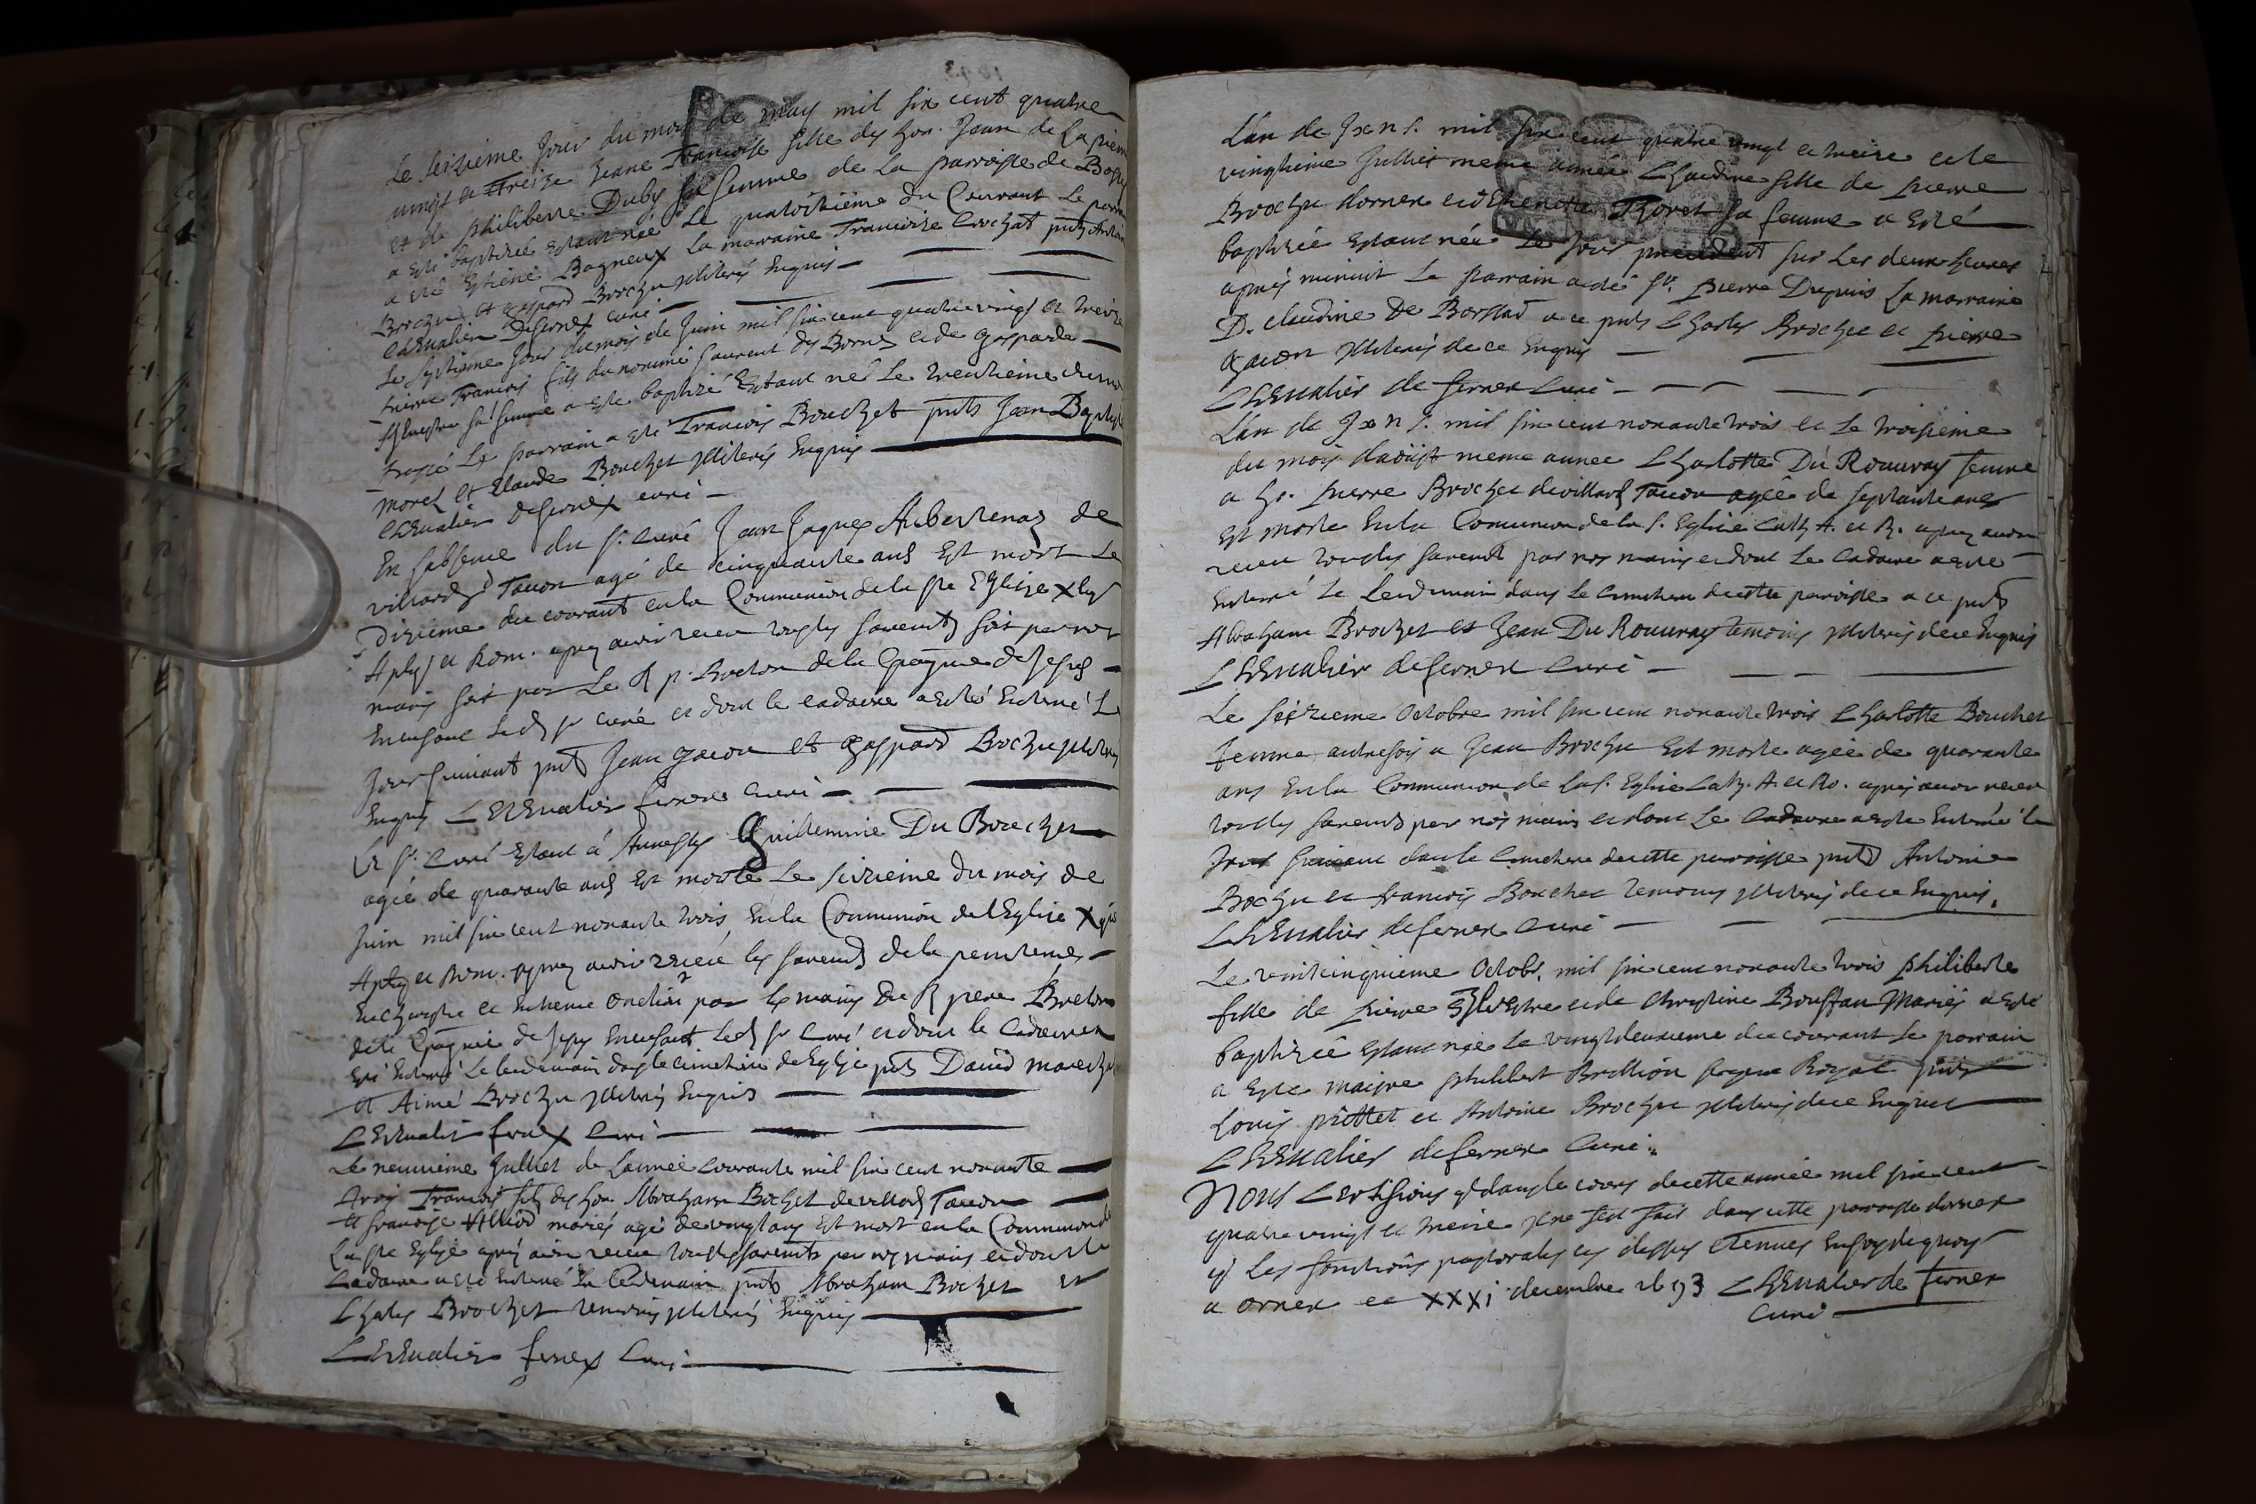 Le seizieme jour du mois de may mil six cent quatre
vingt et treize Jeane Francoise fille des hon. Jean de la pierre
et de philiberte Duby sa femme de la parroisse de
a esté baptisée estant née Le quatorzième du Courant Le parrain
a esté Estiene Bagneux La marraine Francoise Crochat pnts Antoine
Brochu et gaspard Brochu jlliterés Enquis
Chevalier de fernex curé
Le septieme jour du mois de Juin mil six cent quatre vingt et treize
Francois fils du nommé Laurent des Bornes et de gasparde
sa femme a esté baptizé Estant né Le trentieme du mois
Le parrain a esté Francois Bouchet pnts Jean Baptiste
Morel et Claude Bouchet jlliterés Enquis
Chevalier de fernex curé
En l'absence du sr. curé Jean Jaques Aubertenaz de
villards Tacon agé de cinquante ans Est mort Le
Dizieme du courant en la Communion de la ste Eglise
Aplq et Rom. apres avoir receu tous les sacrents soit par nos
mains soit par Le R p. Breton de la Compagnie de Jesus
En l'absence du sr curé et dont le cadavre a esté Enterré Le
Jour suivant pnts Jean gacon et gaspard Brochu jlliterés
Enquis Chevalier fernex curé
Le sr. curé Estant à Annessy Guillemine Du Bouchet
agée de quarante ans Est morte Le seizieme du mois de
Juin mil six cent nonante trois En la Communion de l'Eglise
Aplq et Rom. apres avoir receu les sacrents de la penitence
Eucharistie et Extreme onction par les mains du R pere Breton
de la Compagnie de Jesus En l'absence dud sr curé et dont le Cadavre a
esté Enterré Le lendemain dans le cimetiere de l'Eglise pnts David
et Aimé Brochu jlliterés Enquis
Chevalier fernex Curé
Le neuvième Julliet de l'année courante mil six cent nonante
trois Francois fils des hon. Abraham Bochet de villards Tacon
et francoise mariés agé de vingt ans Est mort en la Communion de
La ste Eglise après avoir receu tous les sacrents par nos mains et dont le
Cadavre a esté Enterré Le Lendemain pnts Abraham Bochet et
Charles Brochet temoins jlliterés Enquis
Chevalier fernex Curé
L'an de mil six cent quatre vingt et treize et le
vingtieme Julliet meme année Chaudine fille de pierre
Brochu dornex et d'Estienette Thoret sa femme a esté
baptizée Estant née Le jour precedent sur Les deux heures
après minuit Le parrain a esté sr. Pierre Dupuis La marraine
D. claudine De a ce pnts Charles Brochet et pierre
gacon jlliterés de ce Enquis
Chevalier de fernex Curé
L'an de mil six cent nonante trois et Le troisieme
du mois d'aoust meme année Charlotte Du Rouvray femme
a ho. pierre Brochet de villards Tacon agée de septante ans
Est morte En la Communion de la s. Eglise Cath. A. et R. apres avoir
receu tous les sacrents par nos mains et dont Le Cadavre a esté
Enterré Le Lendemain dans Le cimetiere de cette parroisse a ce pnts
Abraham Brochet et Jean Du Rouvray temoins jlliterés de ce Enquis
Chevalier de fernex Curé
Le seizieme Octobre mil six cent nonante trois Charlotte Bouchet
femme autrefois a Jean Brochu Est morte agée de quarante
ans En la Communion de La s. Eglise Cath. A. et Ro. après avoir receu
tous les sacrents par nos mains et dont Le Cadavre a esté Enterré le
Jour suivant dans le cimetiere de cette parroisse pnts Antoine
Bochu et francois Bouchet temoins jlliterés de ce Enquis.
Chevalier de fernex Curé
Le vintcinquieme Octobr. mil six cent nonante trois philiberte
fille de pierre Sylvestre et de christine Mariés a esté
baptizée Estant née Le vingtdeuxieme du courant Le parrain
a Esté maitre philibert Brillion Royal pnts
Louis prottet et Antoine Brochu jlliterés de ce Enquis
Chevalier de fernex Curé.
Nous Certifions q dans le cours de cette année mil six cent
quatre vingt et treize jl ne s'est fait dans cette parroisse dornex
q Les fonctions pastorales cy dessus Contenues En foy de quoy
a ornex ce xxxi decembre 1693 Chevalier de fernex
curé